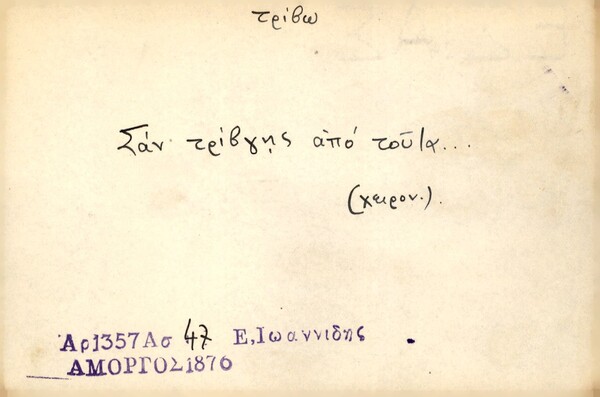 τρίβω
Σάν τρίβγῃς ἀπό τοῦ1α...
(χειρον.).
Ἀρ1357Ασ 47 Ε,Ιωαννιδης
ΑΜΟΡΓΟΣ1876